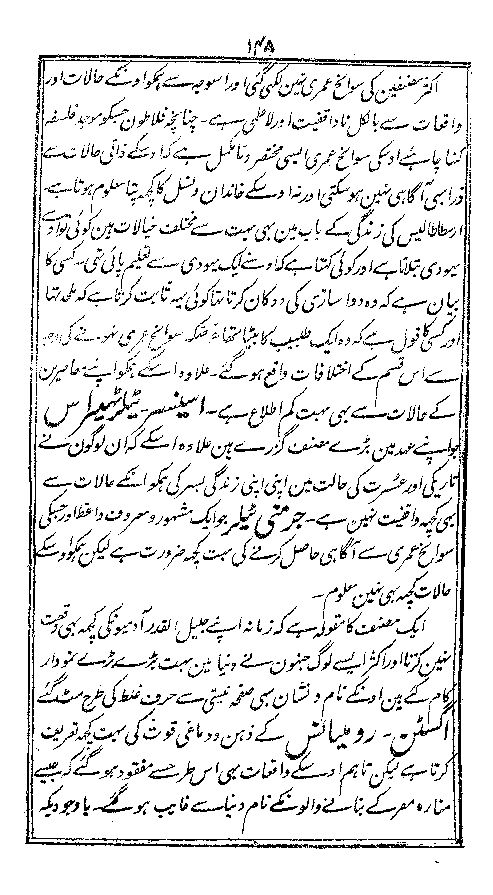 ۱۴۸
اکثر مصنفین کی سوانح عمری نہین لکھی گئی اور اسوجہ سے ہمکو اونکے حالات اور
واقعات سے بالکل ناواقفیت اور لاعلمی ہے۔ چنانچہ فلاطون جسکو موجد فلسفہ
کہنا چاہئے اوسکی سوانح عمری ایسی مختصر و نامکمل ہے کہ اوسکے ذاتی حالات سے
ذرا بہی آگاہی نہین ہوسکتی اور نہ اوسکے خاندان و نسل کا کچھ پتا معلوم ہوتا ہے۔
ارسطاطالیس کی زندگی کے باب مین بہی بہت سے مختلف خیالات ہین کوئی تو اوسے
یہودی بتلاتا ہے اور کوئی کہتا ہے کہ اوسنے ایک یہودی سے تعلیم پائی تہی۔ کسی کا
بیان ہے کہ وہ دواسازی کی دوکان کرتا تہا کوئی یہہ ثابت کرتا ہے کہ ملحد تہا
اور کسی کا قول ہے کہ وہ ایک طبیب کا بیٹا تہا غرضکہ سوانح عمری نہونے کی وجہ
سے اس قسم کے اختلافات واقع ہوگئے۔ علاوہ اسکے ہمکو اپنے معاصرین
کے حالات سے بہی بہت کم اطلاع ہے۔ اسپنسر۔ بٹلر
جو اپنے عہد مین بڑے مصنف گزرے ہین علاوہ اسکے کہ ان لوگون نے
تاریکی اور عسرت کی حالت مین اپنی اپنی زندگی بسر کی ہمکو انکے حالات سے
بہی کچہہ واقفیت نہین ہے۔ جرمنی ٹیلر جو ایک مشہور و معروف واعظ اور جسکی
سوانح عمری سے آگاہی حاصل کرنے کی بہت کچہہ ضرورت ہے لیکن ہمکو اوسکے
حالات کچہہ بہی نہین معلوم۔
ایک مصنف کا مقولہ ہے کہ زمانہ اپنے جلیل القدر آدمیونکی کچہہ بہی وقعت
نہین کرتا اور اکثر ایسے لوگ جنہون نے دنیا مین بہت بڑے بڑے نمودار
کام کئے ہین اونکے نام و نشان بہی صفحہ ہستی سے حرف غلط کی طرح مٹ گئے
اگسٹن۔ رومیانس کے ذہن و دماغی قوت کی بہت کچہہ تعریف
کرتا ہے لیکن تاہم اوسکے واقعات بہی اس طرح سے مفقود ہوگئے کہ جیسے
منارہ مصر کے بنانے والونکے نام دنیا سے غایب ہوگئے۔ باوجودیکہ